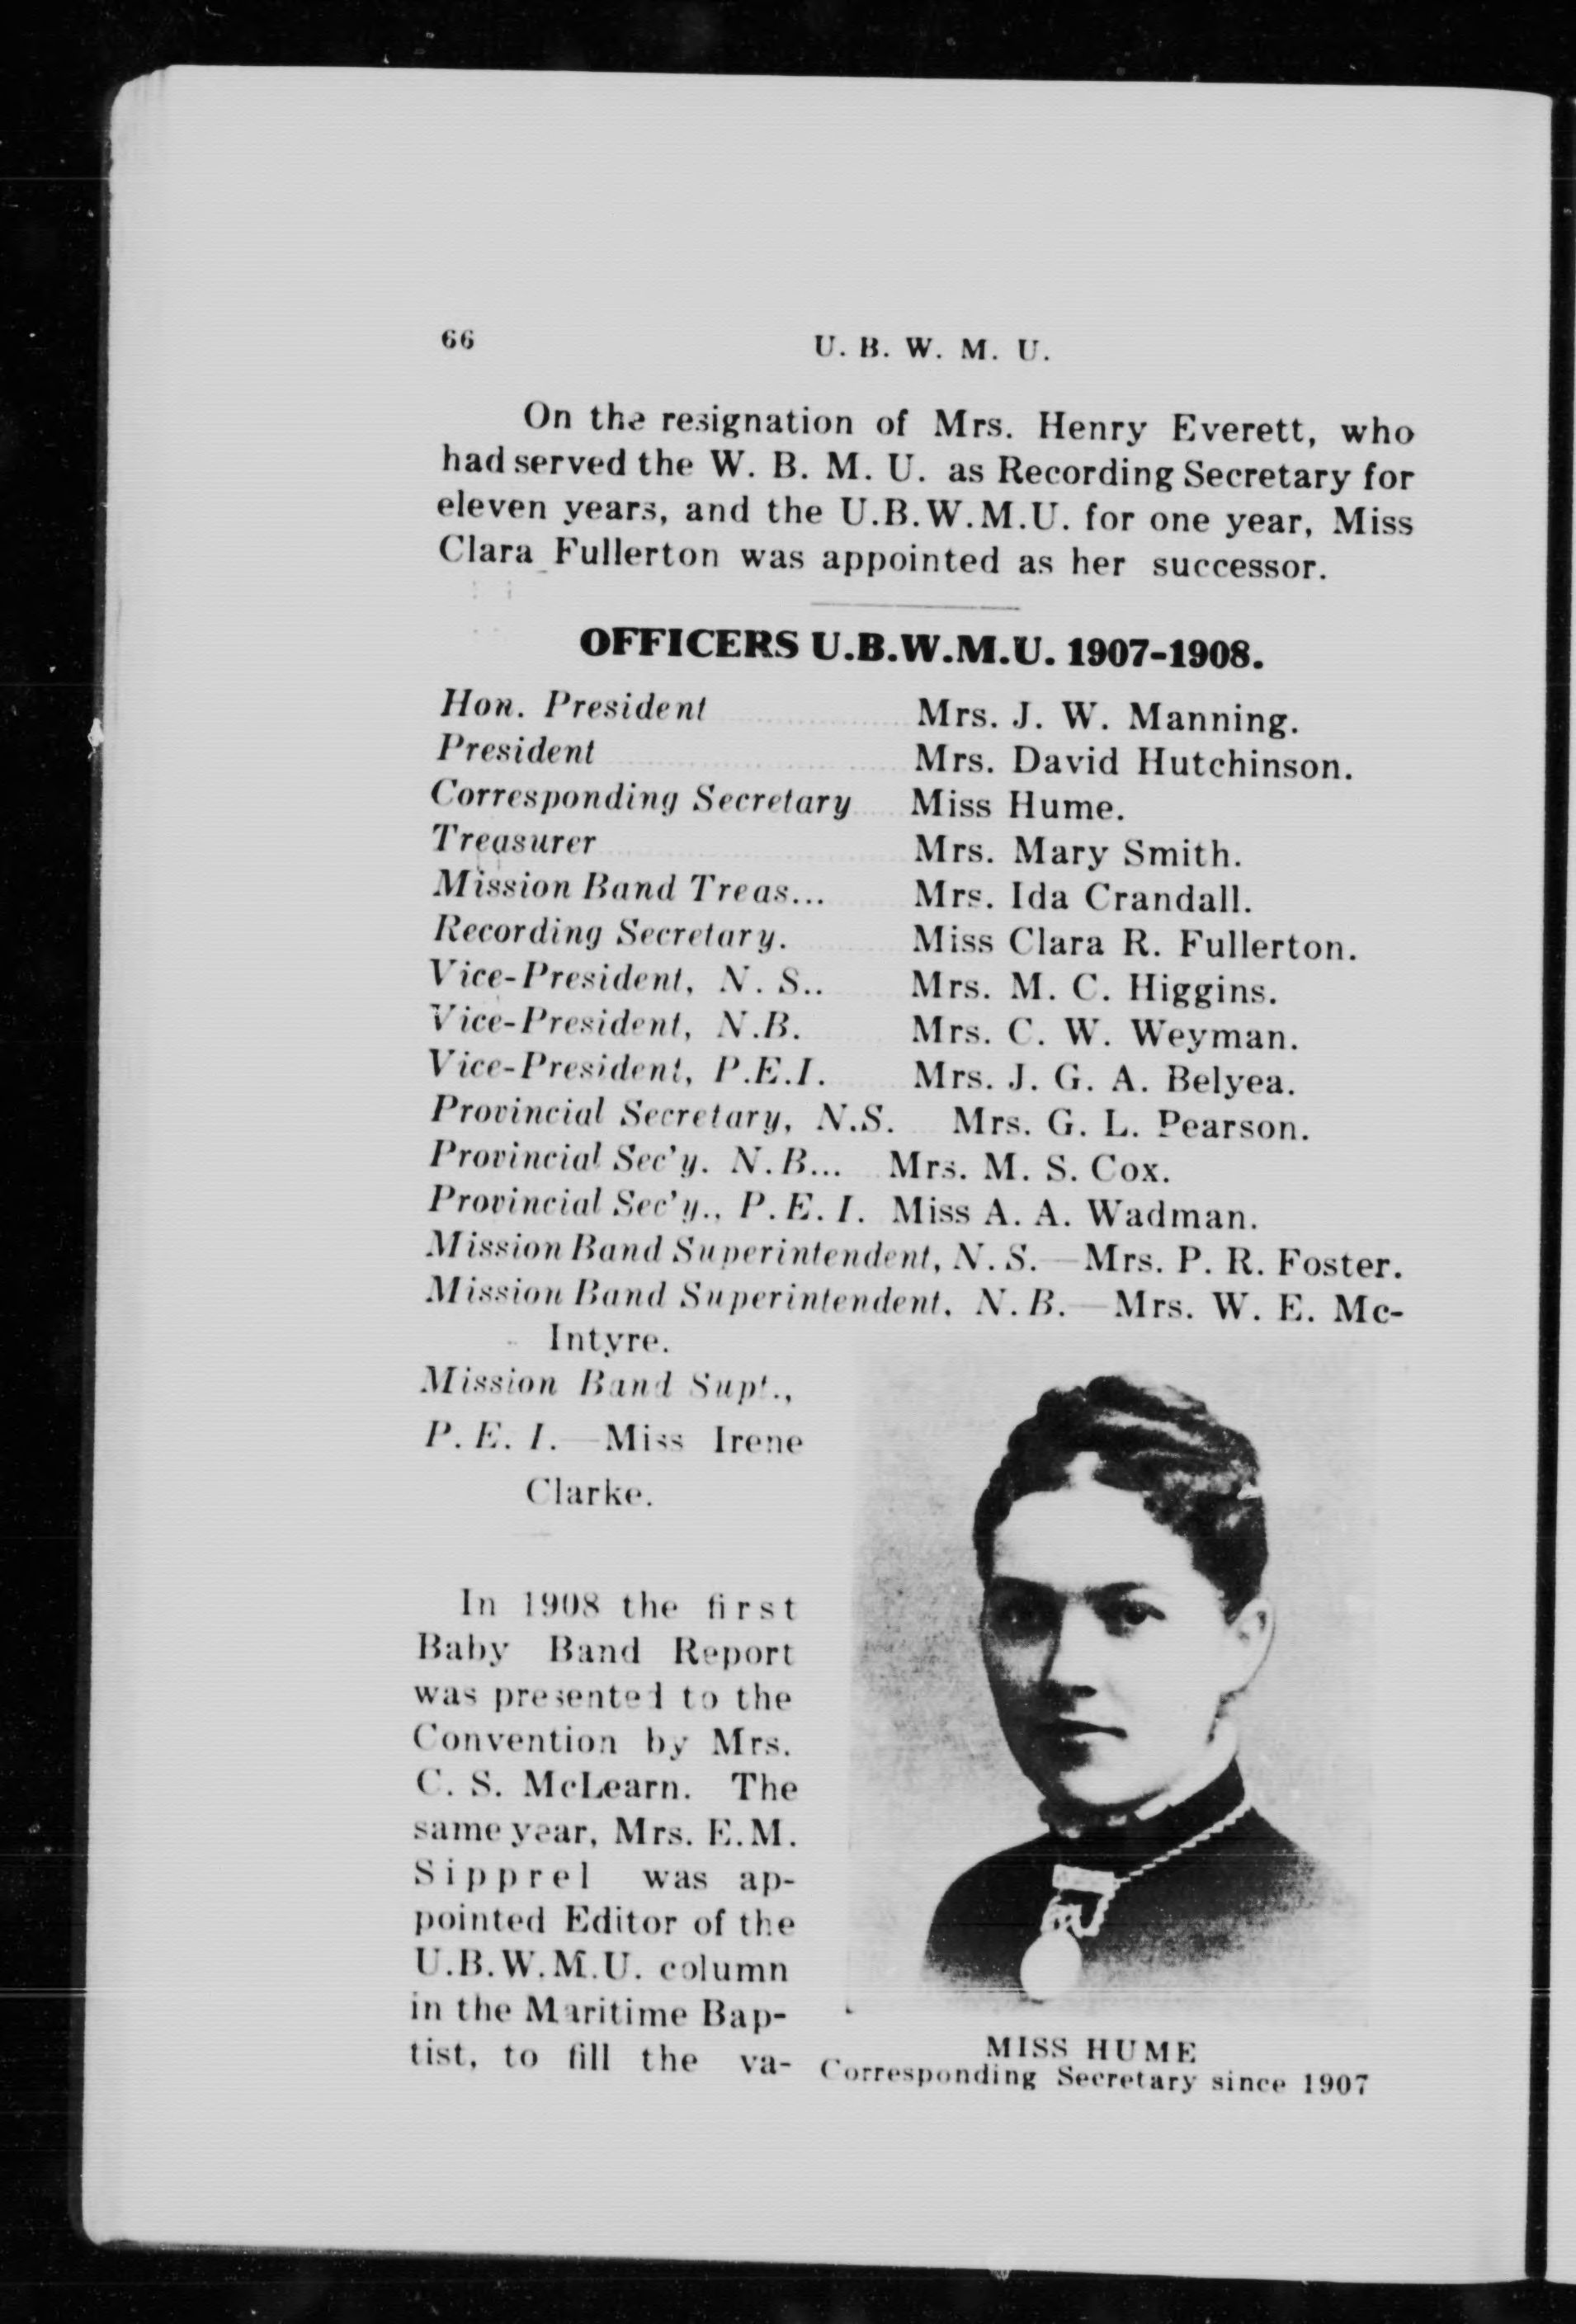 66
U. B. W. M. U.
On the resignation of Mrs. Henry Everett, who
had served the W. B. M. U. as Recording Secretary for
eleven years, and the U.B.W.M.U. for one year, Miss
Clara Fullerton was appointed as her successor.
OFFICERS U.B.W.M.U. 1907-1908.
Hon. President Mrs. J. W. Manning.
President Mrs. David Hutchinson.
Corresponding Secretary Miss Hume.
Treasurer Mrs. Mary Smith.
Mission Band Treas... Mrs. Ida Crandall.
Recording Secretary. Miss Clara R. Fullerton.
Vice-President, N. S.. Mrs. M. C. Higgins.
Vice-President, N.B. Mrs. C. W. Weyman.
Vice-President, P.E.I. Mrs. J. G. A. Belyea.
Provincial Secretary, N.S. Mrs. G. L. Pearson.
Provincial Sec'y. N.B... Mrs. M. S. Cox.
Provincial Sec'y., P.E.I. Miss A. A. Wadman.
Mission Band Superintendent, N.S.—Mrs. P. R. Foster.
Mission Band Superintendent, N.B.—Mrs. W. E. Mc-
Intyre.
Mission Band Supt.,
P.E.I.—Miss Irene
Clarke.
In 1908 the first
Baby Band Report
was presented to the
Convention by Mrs.
C. S. McLearn. The
same year, Mrs. E.M.
Sipprel was ap-
pointed Editor of the
U.B.W.M.U. column
in the Maritime Bap-
tist, to fill the va-
MISS HUME
Corresponding Secretary since 1907